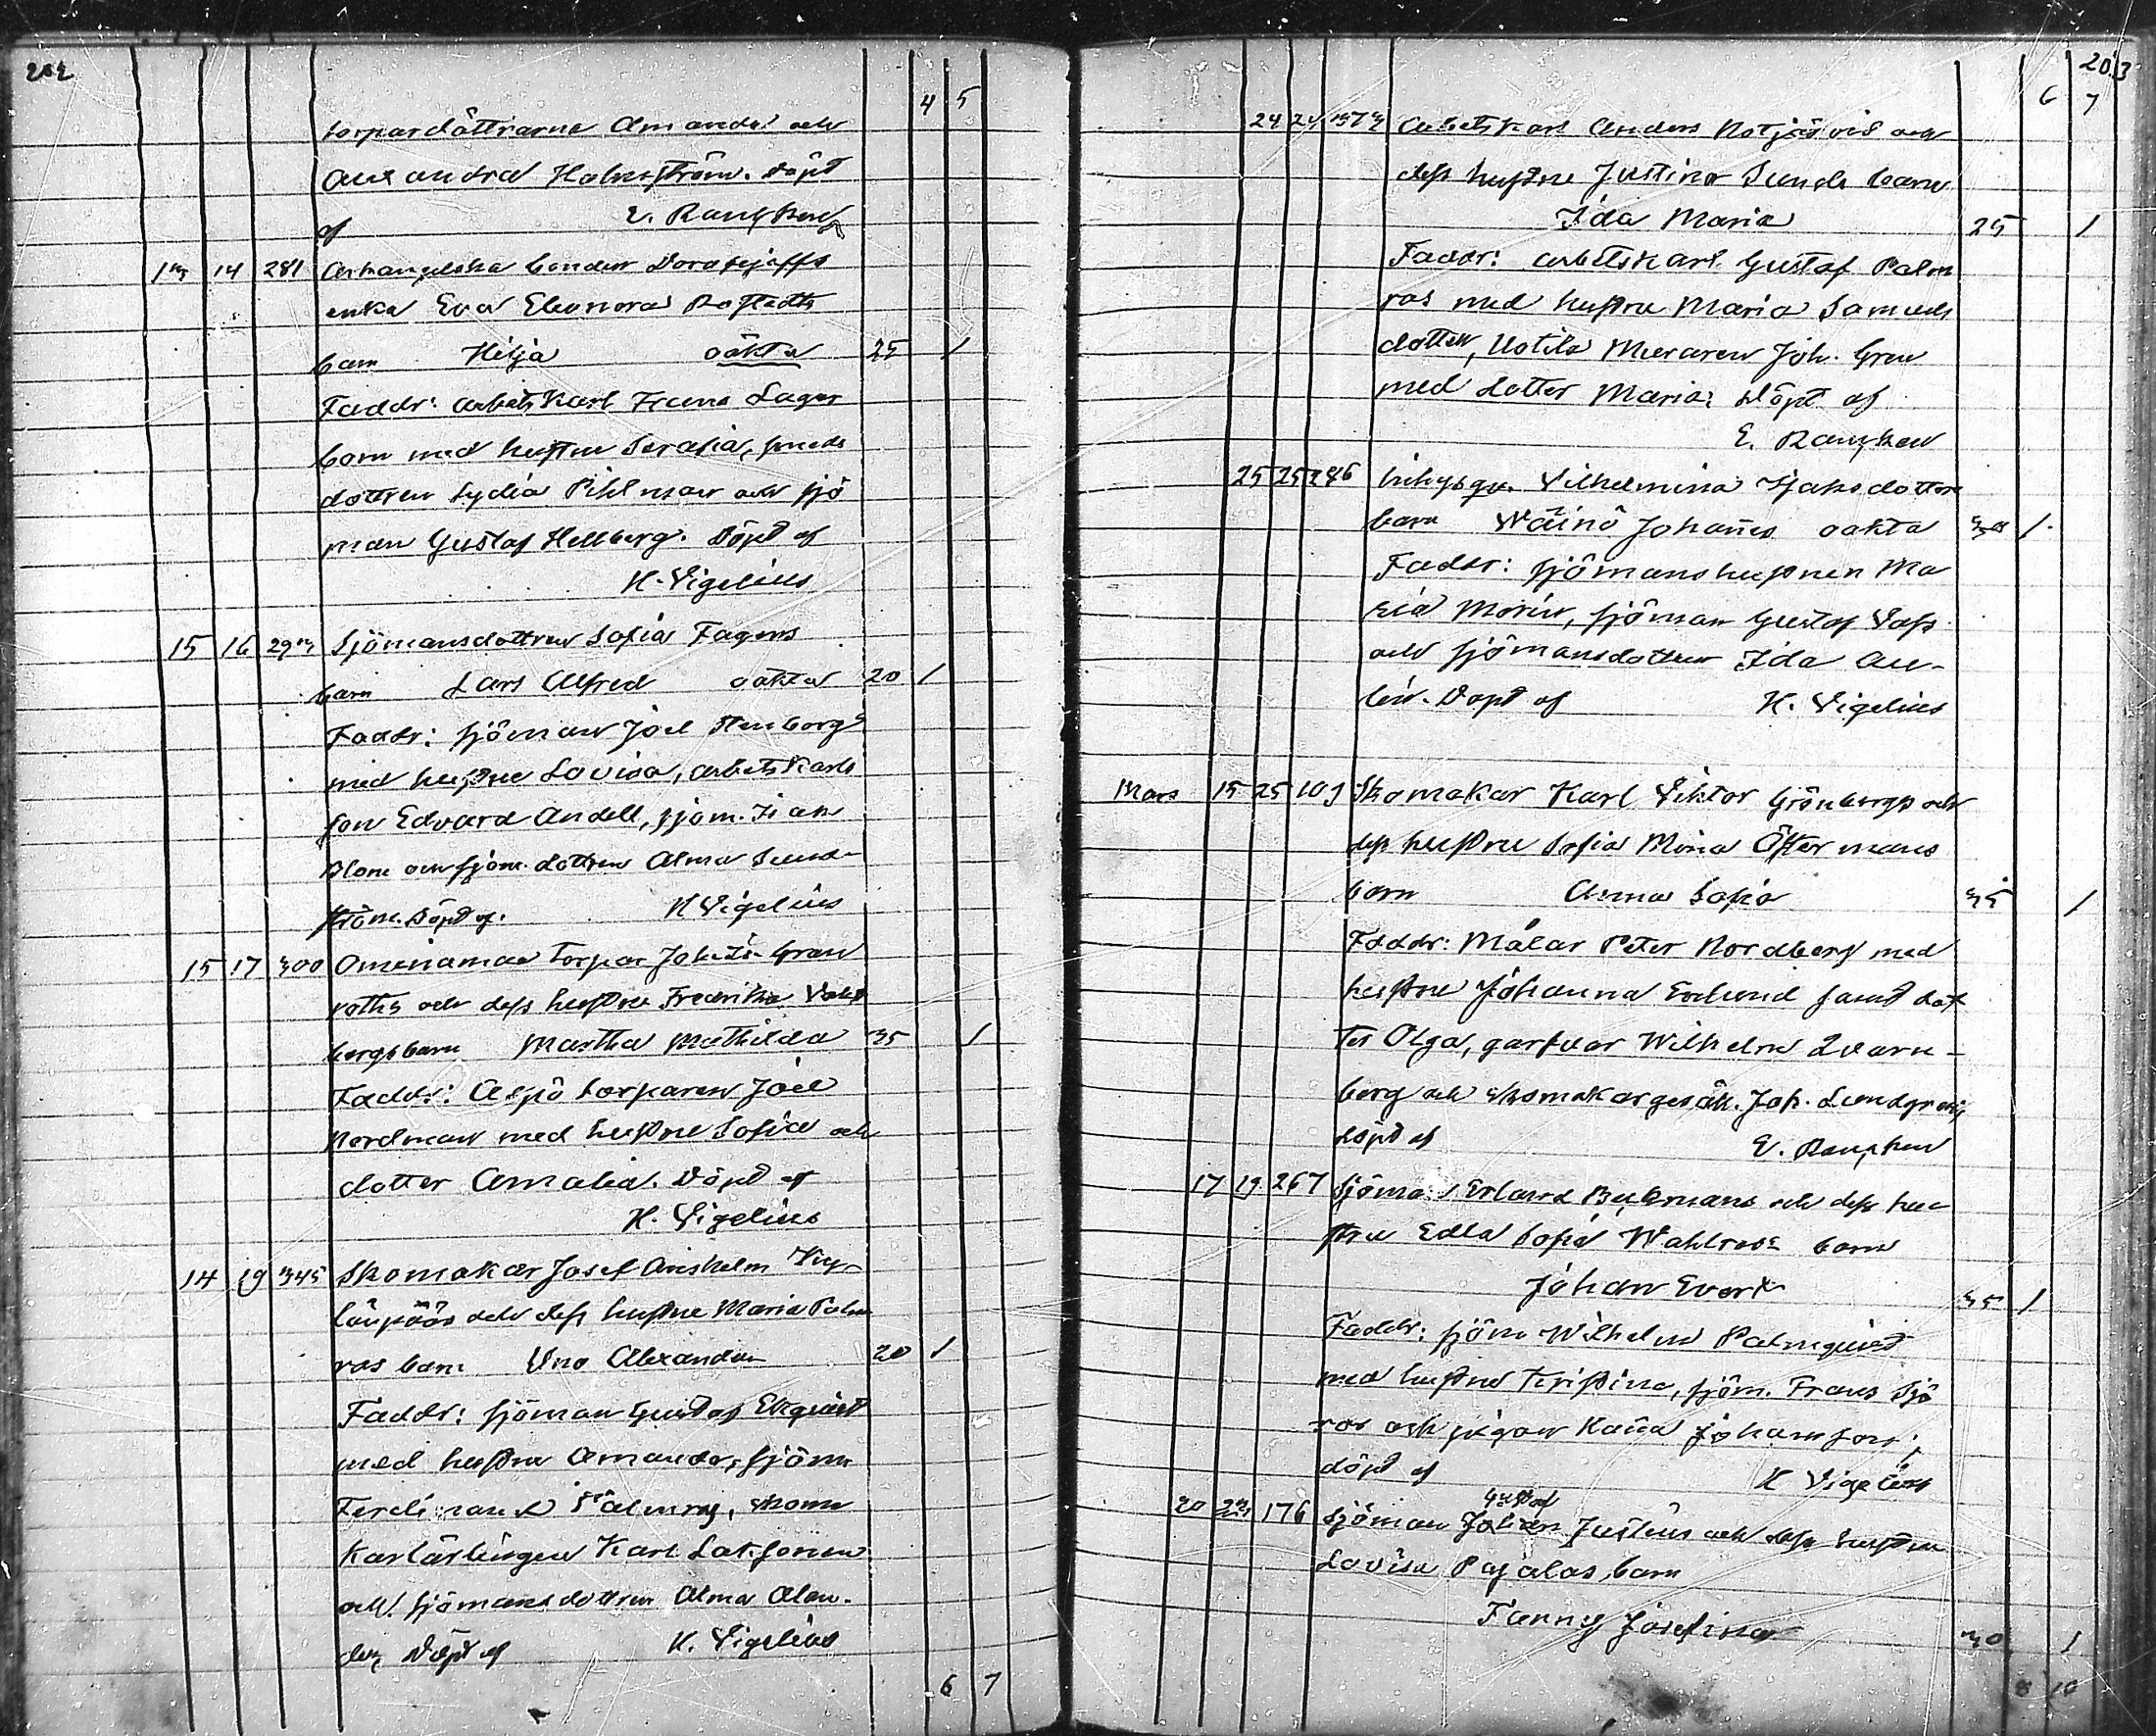 202
4 5
torpardöttrarne Amanda och
Alexandra Holmström. Döpt
af E. Rancken
13 14 281 Arhangelska bonden
enka Eva Eleonora Rostedts
barn Hilja oäkta 25 1
Faddr: arbetskarl Frans Lager
bom med hustru Serafia, smeds
dottren Lydia Pihlman och sjö
man Gustaf Hellberg. Döpt af
K. Vigelius
15 16 293 Sjömansdottren Sofia Fagers
barn Lars Alfred oäkta 20 1
Faddr: sjöman Joel Stenborg
med hustru Lovisa, arbetskarls
son Edvard Andell, sjöm. Isak
Blom och sjöm. dottren Alma Sund-
ström. Döpt af. K Vigelius
15 17 300 Omenamaa torpar Joh. Gran
roths och dess hustru Fredrika
bergs barn Martha Mathilda 35 1
Faddr: Aspö torparen Joel
Nordman med hustru Sofia och
dotter Amalia. Döpt af
K. Vigelius
14 19 345 Skomakar Josef Anshelm
och dess hustru Maria Palm
ros barn Uno Alexander 20 1
Faddr: sjöman Gustaf Ekqvist
med hustru Amanda, sjöm
Ferdinand Palmros, skoma
karlärlingen Karl
och sjömansdottren Alma Alan-
der, Döpt af K. Vigelius
6 7
203
6 7
24 24 Arbetskarl Anders och
dess hustru Justina Sunds barn
Ida Maria 25 1
Faddr: arbetskarl Gustaf Palm
ros med hustru Maria Samuels
dotter, Uotila Muraren Joh. Gran
med dotter Maria; Döpt af
E. Rancken
25 25 286 Inhysqv. Vilhelmina dotters
barn Wäinö Johannes oäkta 30 1.
Faddr: sjömanshustrun Ma
ria Morin, sjöman Gustaf Vass
och sjömansdottren Ida Au-
lin. Döpt af K. Vigelius
Mars 15 25 109 Skomakar Karl Viktor Grönbergs och
dess hustru Sofia Mina Östermans
barn Anna Sofia 35 1
Faddr: Målar Peter Nordberg med
hustru Johanna Englund samt dot
ter Olga, garfvar Wilhelm Qvarn-
berg och skomakargesäll. Joh. Lundgren,
döpt af E. Rancken
17 19 267 Sjöman Erland Beckmans och dess hu-
stru Edla Sofia Wahlros barn
Johan Evert 35 1
Faddr: sjöm Wilhelm Palmqvist
med hustru Kristina, sjöm. Frans Sjö
ros och pigan Kaisa Johansson;
döpt af K Vigelius
Gustaf
20 23 176 Sjöman Johan Justins och dess hustru
Lovisa Pajalas barn
Fanny Josefina 30 1
8 10